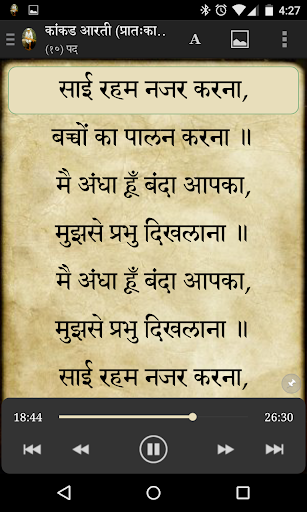 4:27
कांकड आरती (प्रातःका...
(१०) पद
A
साई रहम नजर करना,
बच्चों का पालन करना ॥
मै अंधा हूँ बंदा आपका,
मुझसे प्रभु दिखलाना ॥
मै अंधा हूँ बंदा आपका,
मुझसे प्रभु दिखलाना ॥
साई रहम नजर करना,
18:44 26:30